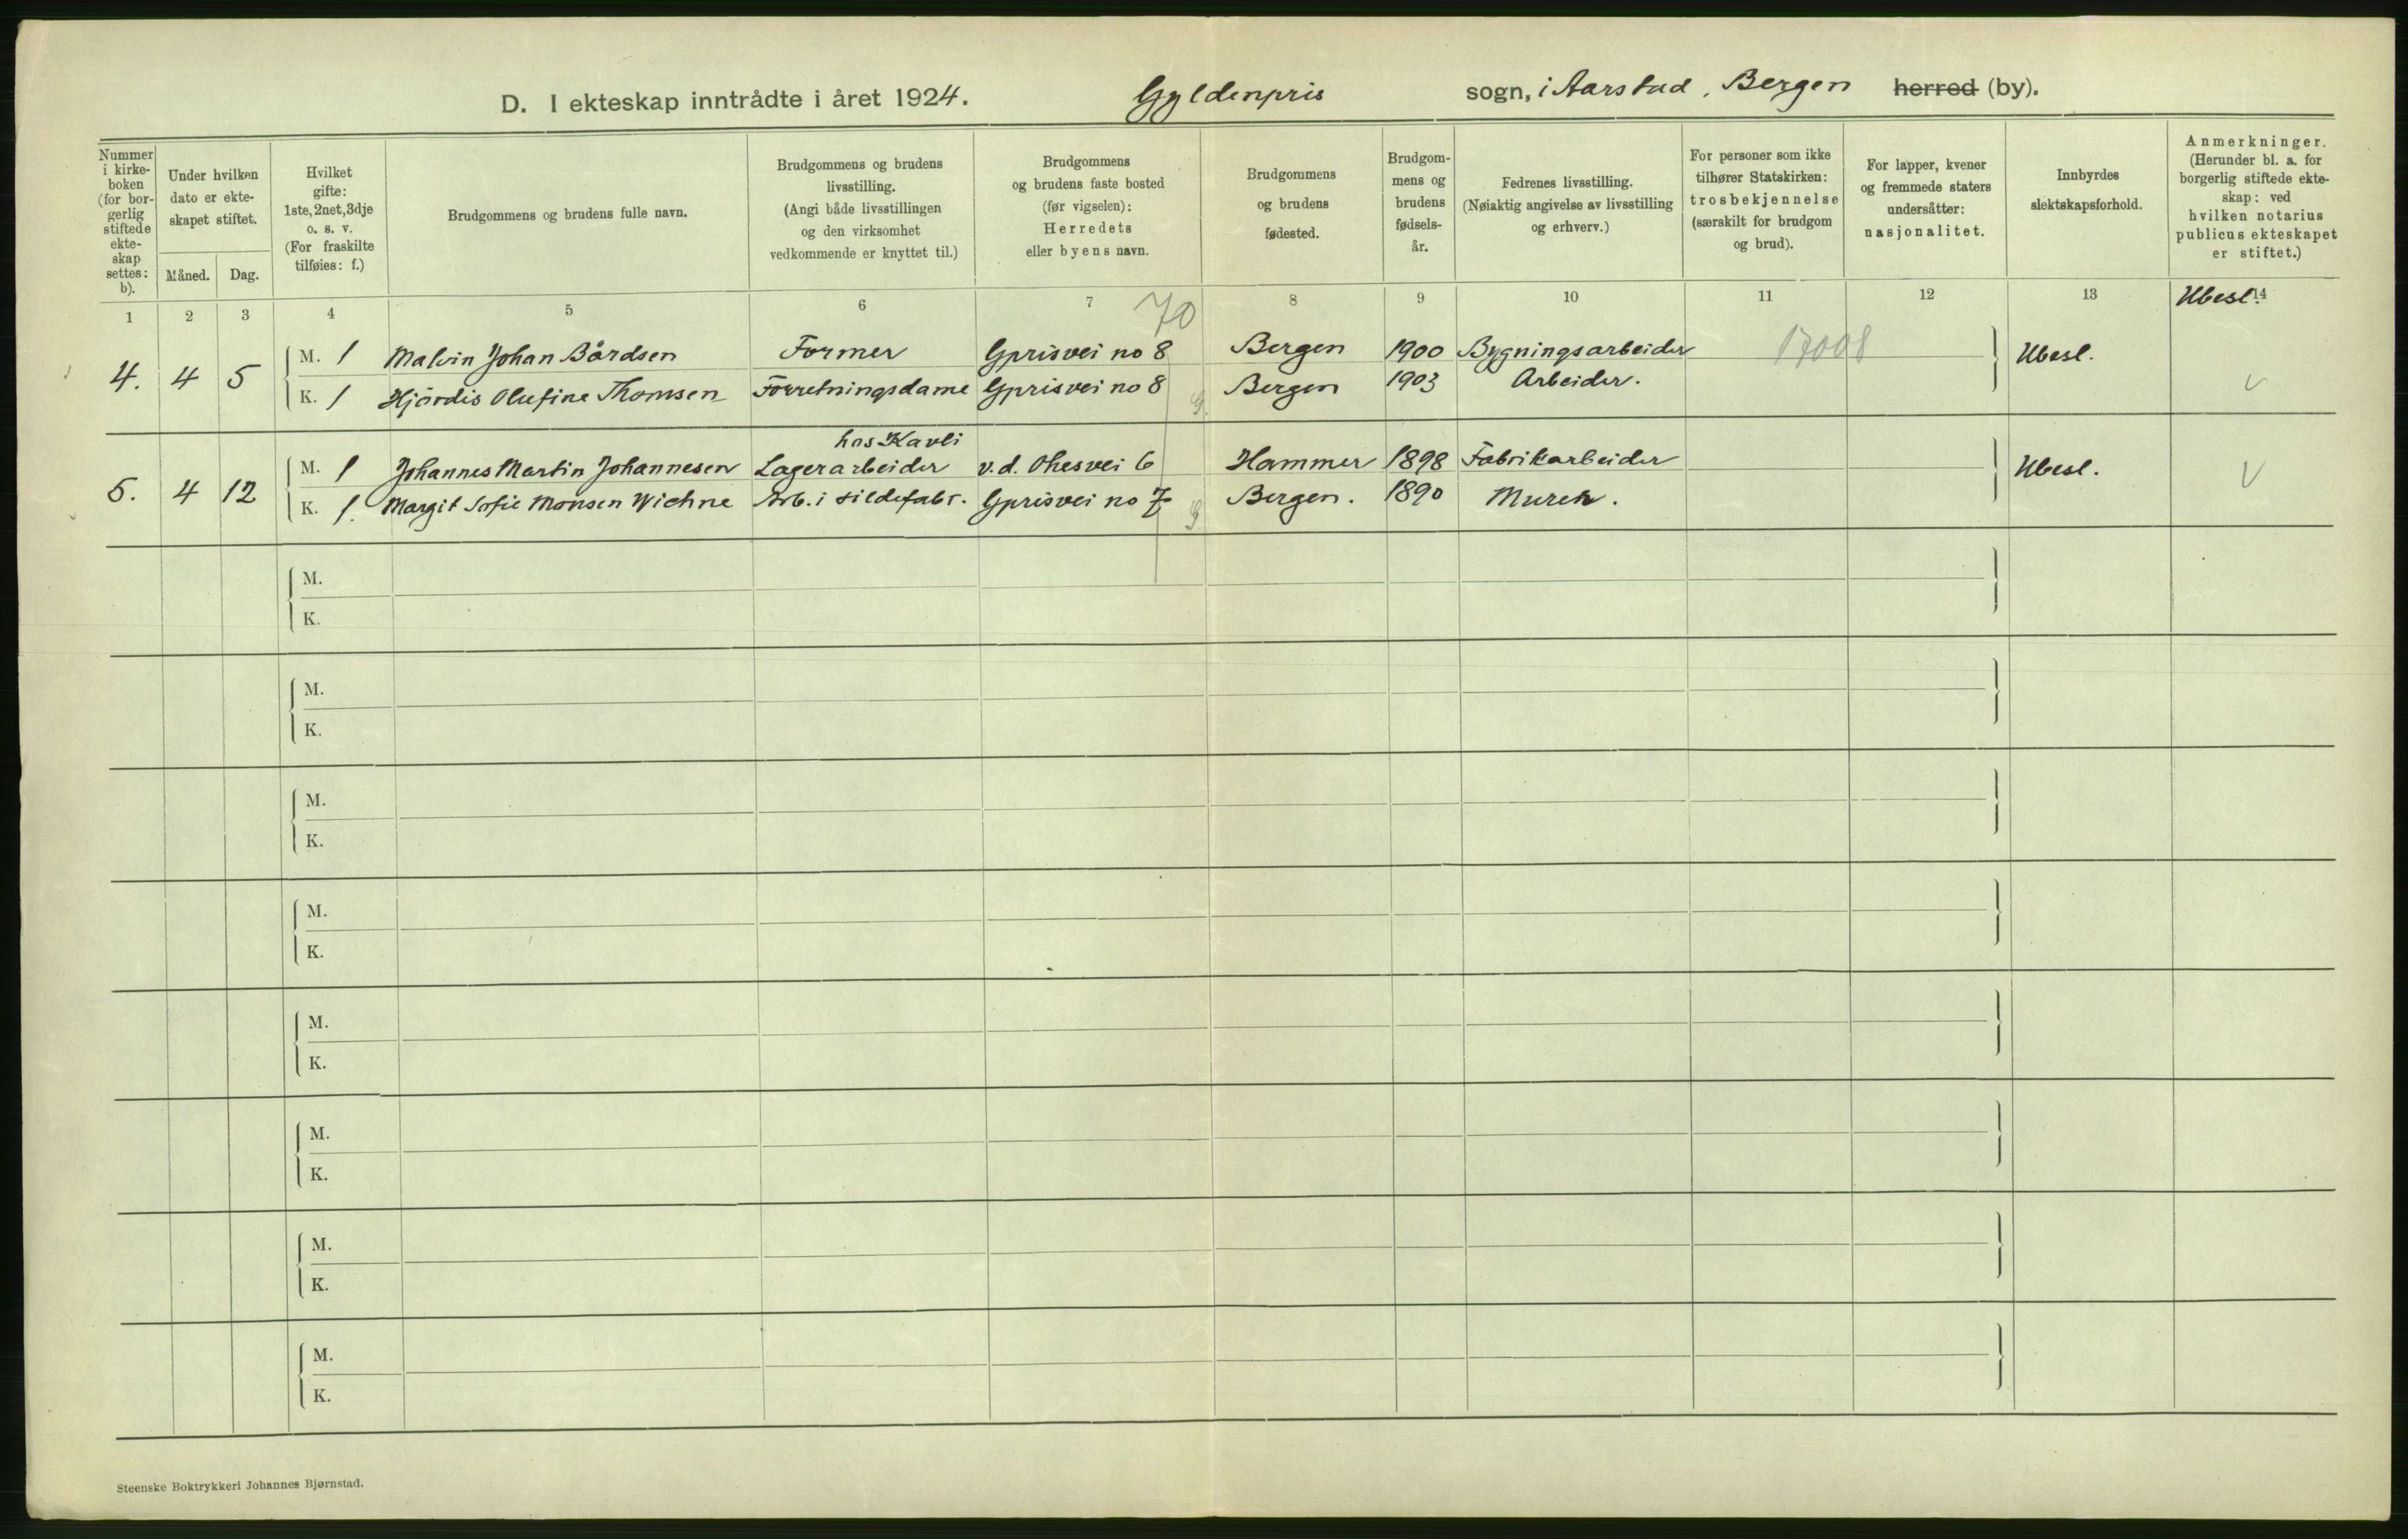 D. I ekteskap inntrådte i året 1924. Gyldenpris sogn, i Aarstad, Bergen herred (by).
Nummer i kirkeboken (for borgerlig stiftede ekteskap settes: b).
Under hvilken dato er ekteskapet stiftet.
Måned. Dag.
Hvilket gifte: 1ste, 2net, 3dje o. s. v. (For fraskilte tilføies: f.)
Brudgommens og brudens fulle navn.
Brudgommens og brudens livsstilling. (Angi både livsstillingen og den virksomhet vedkommende er knyttet til.)
Brudgommens og brudens faste bosted (før vigselen): Herredets eller byens navn.
Brudgommens og brudens fødested.
Brudgommens og brudens fødselsår.
Fedrenes livsstilling. (Nøiaktig angivelse av livsstilling og erhverv.)
For personer som ikke tilhører Statskirken: trosbekjennelse (særskilt for brudgom og brud).
For lapper, kvener og fremmede staters undersåtter: nasjonalitet.
Innbyrdes slektskapsforhold.
Anmerkninger. (Herunder bl. a. for borgerlig stiftede ekteskap: ved hvilken notarius publicus ekteskapet er stiftet.)
1 2 3 4 5 6 7 8 9 10 11 12 13 14
70 Ubesl.
4. 4 5 M. 1 Malvin Johan Bårdsen Former Gprisvei no 8 Bergen 1900 Bygningsarbeider 17008 Ubesl.
K. 1 Hjördis Olufine Thomsen Forretningsdame Gprisvei no 8 Bergen 1903 Arbeider.
hos Kavli
5. 4 12 M. 1 Johannes Martin Johannesen Lagerarbeider v.d. Ohesvei 6 Hammer 1898 Fabrikarbeider Ubesl.
K. 1. Margit Sofie Monsen Wichne Arb. i sildefabr. Gprisvei no 7 Bergen. 1890 Murer.
M.
K.
M.
K.
M.
K.
M.
K.
M.
K.
M.
K.
M.
K.
M.
K.
Steenske Boktrykkeri Johannes Bjørnstad.